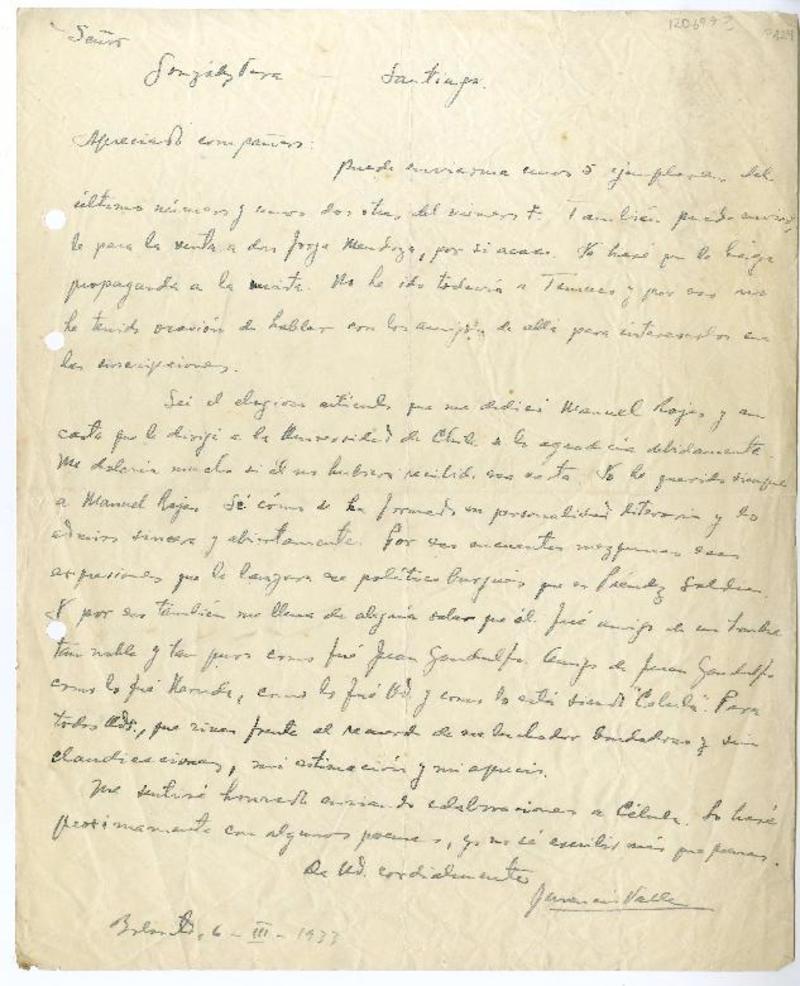 Señor
González Vera — Santiago.
Apreciado compañero:
Puede enviarme unos 5 ejemplares del
último número y unos dos o tres del número 7. También puede enviar
le para la venta a don Jorge Mendoza, por si acaso. Yo haré que le haga
propaganda a la revista. No he ido todavía a Temuco y por eso no
he tenido ocasión de hablar con los amigos de allá para interesarlos en
las suscripciones.
Leí el elogioso artículo que me dedicó Manuel Rojas y en
carta que le dirigí a la Universidad de Chile se lo agradecía debidamente.
Me dolería mucho si él no hubiera recibido esa carta. Yo he querido siempre
a Manuel Rojas. Sé cómo se ha formado su personalidad literaria y lo
admiro sincera y abiertamente. Por eso encuentro mezquinas esas
expresiones que le lanzara ese político burgués que es
Y por eso también me llena de alegría saber que él fué amigo de un hombre
tan noble y tan puro como fué Juan Gandulfo. Amigo de Juan Gandulfo
como lo fué Neruda, como lo fué Ud. y como lo está siendo "Célula". Para
todos Uds., que viven frente al recuerdo de ese luchador bondadoso y sin
claudicaciones, mi estimación y mi aprecio.
Me sentiré honrado enviando colaboraciones a Célula. Lo haré
próximamente con algunos poemas, yo no sé escribir más que poemas.
De Ud. cordialmente
Juvencio Valle
6 - III - 1933
120699